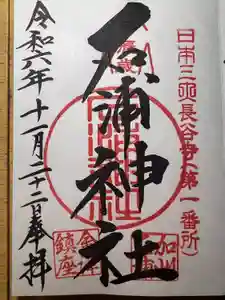 日本三所長谷寺(第一番所)
石浦神社
令和六年十一月二十二日奉拝
加州
金沢
鎮座